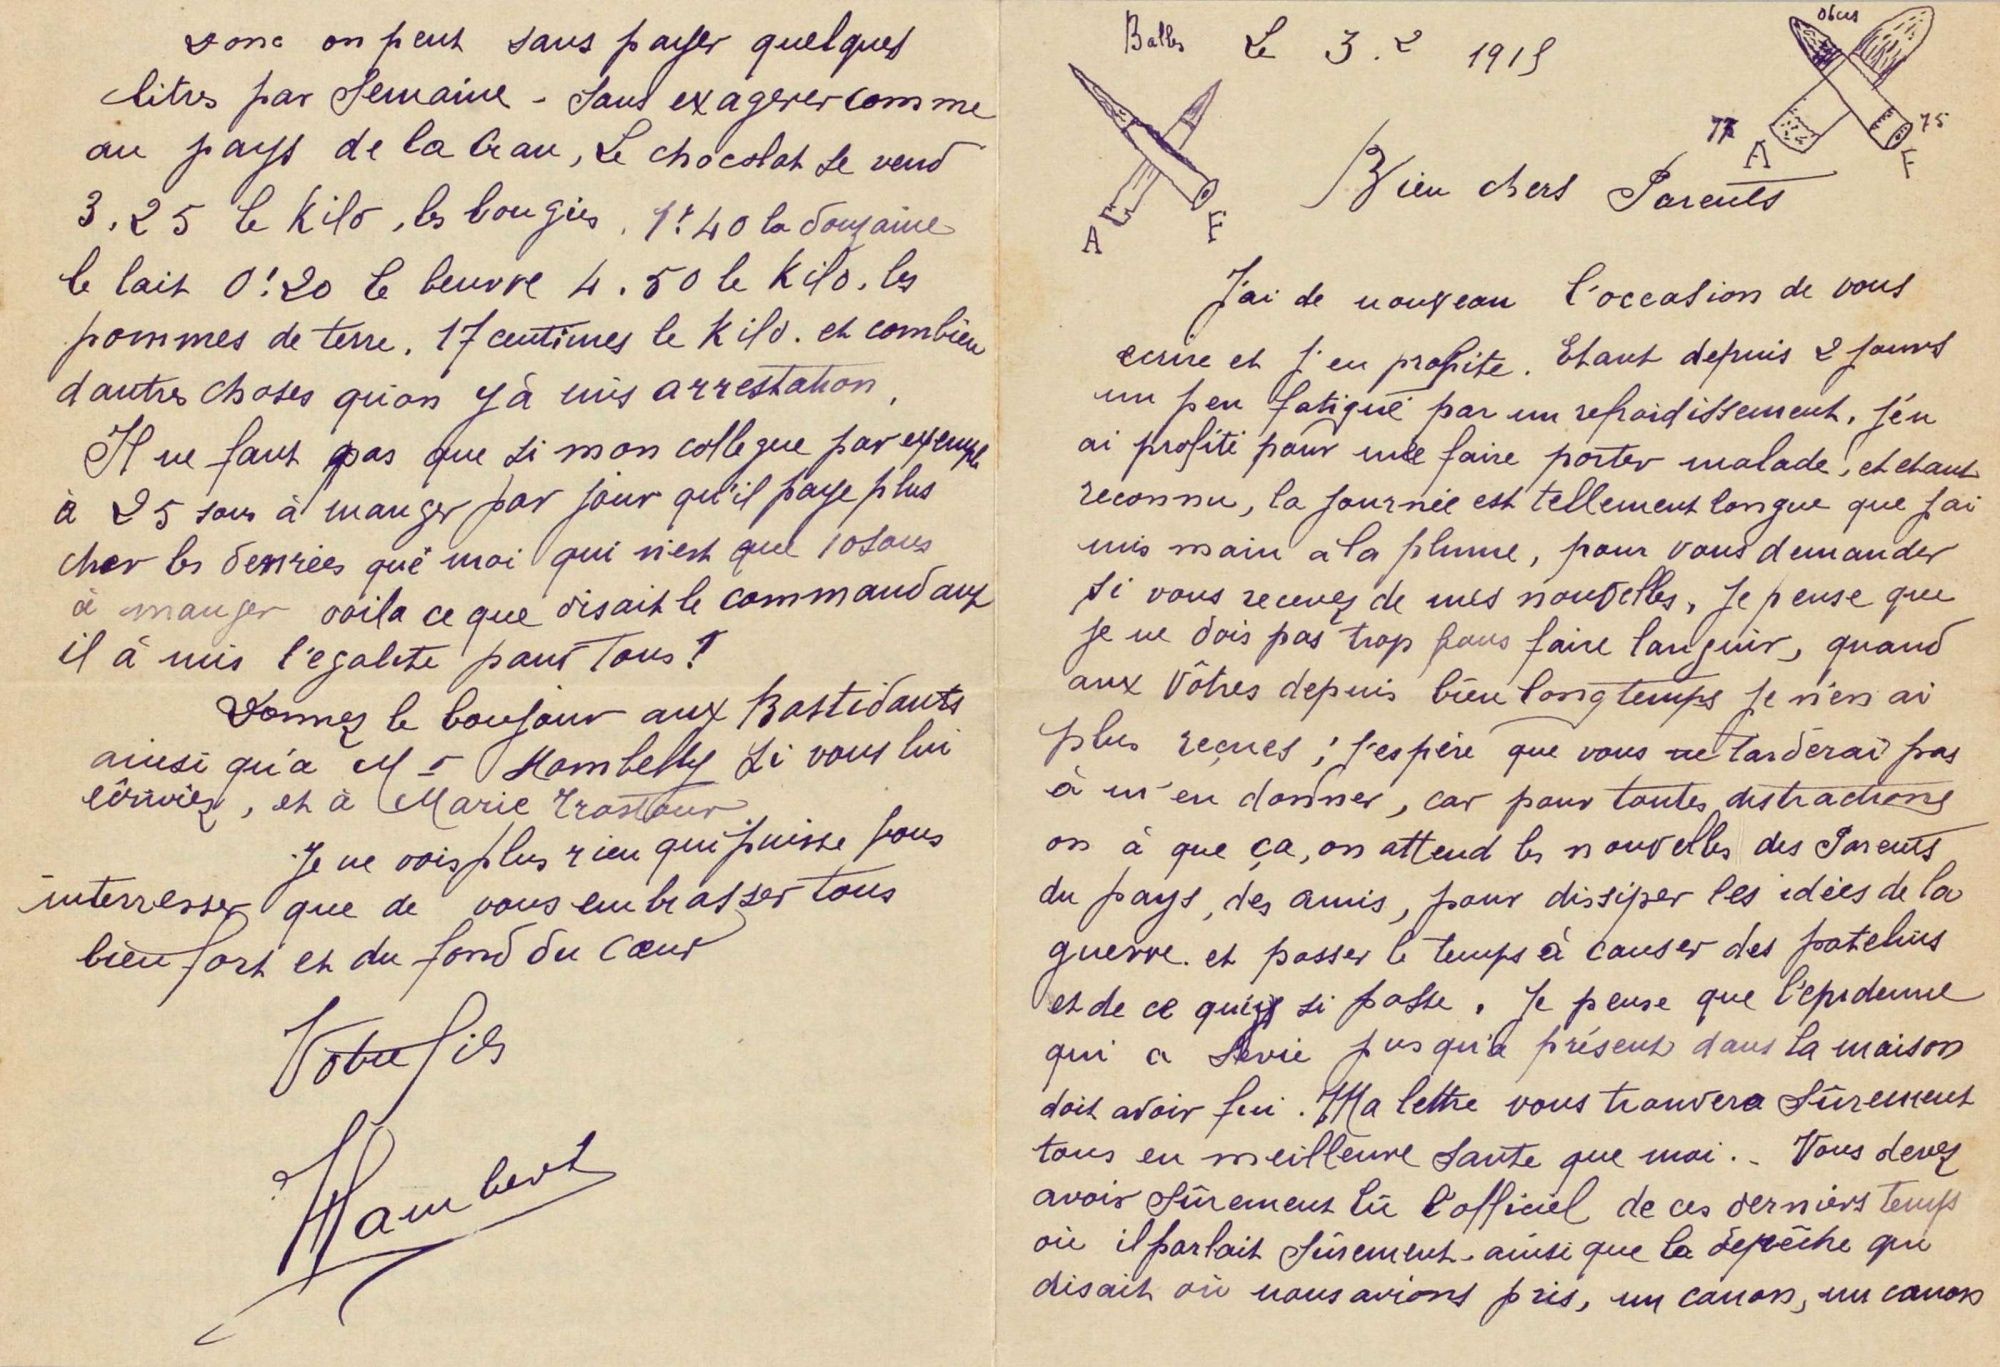 Balles
Le 3.2 1915
obus
77
75
A
F
A
F
Bien chers Parents
J'ai de nouveau l'occasion de vous
ecrire et j'en profite. Etant depuis 2 jours
un peu fatigué par un refroidissement, j'en
ai profité pour me faire porter malade, et etant
reconnu, la journée est tellement longue que j'ai
mis main a la plume, pour vous demander
si vous recevez de mes nouvelles, je pense que
je ne dois pas trop vous faire languir, quand
aux vôtres depuis bien longtemps je n'en ai
plus reçues ; j'espére que vous ne tarderai pas
à m'en donner, car pour toutes distractions
on à que ça, on attend les nouvelles des Parents
du pays, des amis, pour dissiper les idées de la
guerre. et passer le temps à causer des patelins
et de ce qui si passe. Je pense que l'epidemie
qui a sevie jusqu'a présent dans la maison
doit avoir fui. Ma lettre vous trouvera sûrement
tous en meilleure sante que moi.. Vous devez
avoir sûrement lû l'officiel de ces derniers temps
où il parlait sûrement. ainsi que la depêche qui
disait où nous avions pris, un canon, un canon
Donc on peut sans payer quelques
litres par semaine - sans exagerer comme
au pays de la Crau, Le chocolat se vend
3.25 le Kilo, les bougies. 1f40 la douzaine
le lait 0f20 le beurre 4.50 le Kilo. les
pommes de terre. 17 centimes le Kilo. et combien
dautres choses qu'on y à mis arrestation.
Il ne faut pas que si mon collegue par exemple
à 25 sous à manger par jour qu'il paye plus
cher les denrées que moi qui n'est que 10 sous
à manger voila ce que disait le commandant
il à mis l'egalite pour tous!
Donnez le boujour aux Bastidants
ainsi qu'a Mr Mombelly si vous lui
écriviez, et à Marie Trastour
Je ne vois plus rien qui puisse vous
interresser que de vous embrasser tous
bien fort et du fond du cœur
Votre fils
Hambert